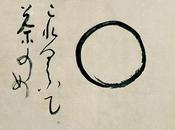 これくふて
茶のめ